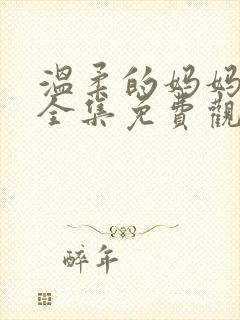 溫柔的妈妈
全集免費觀
醉年